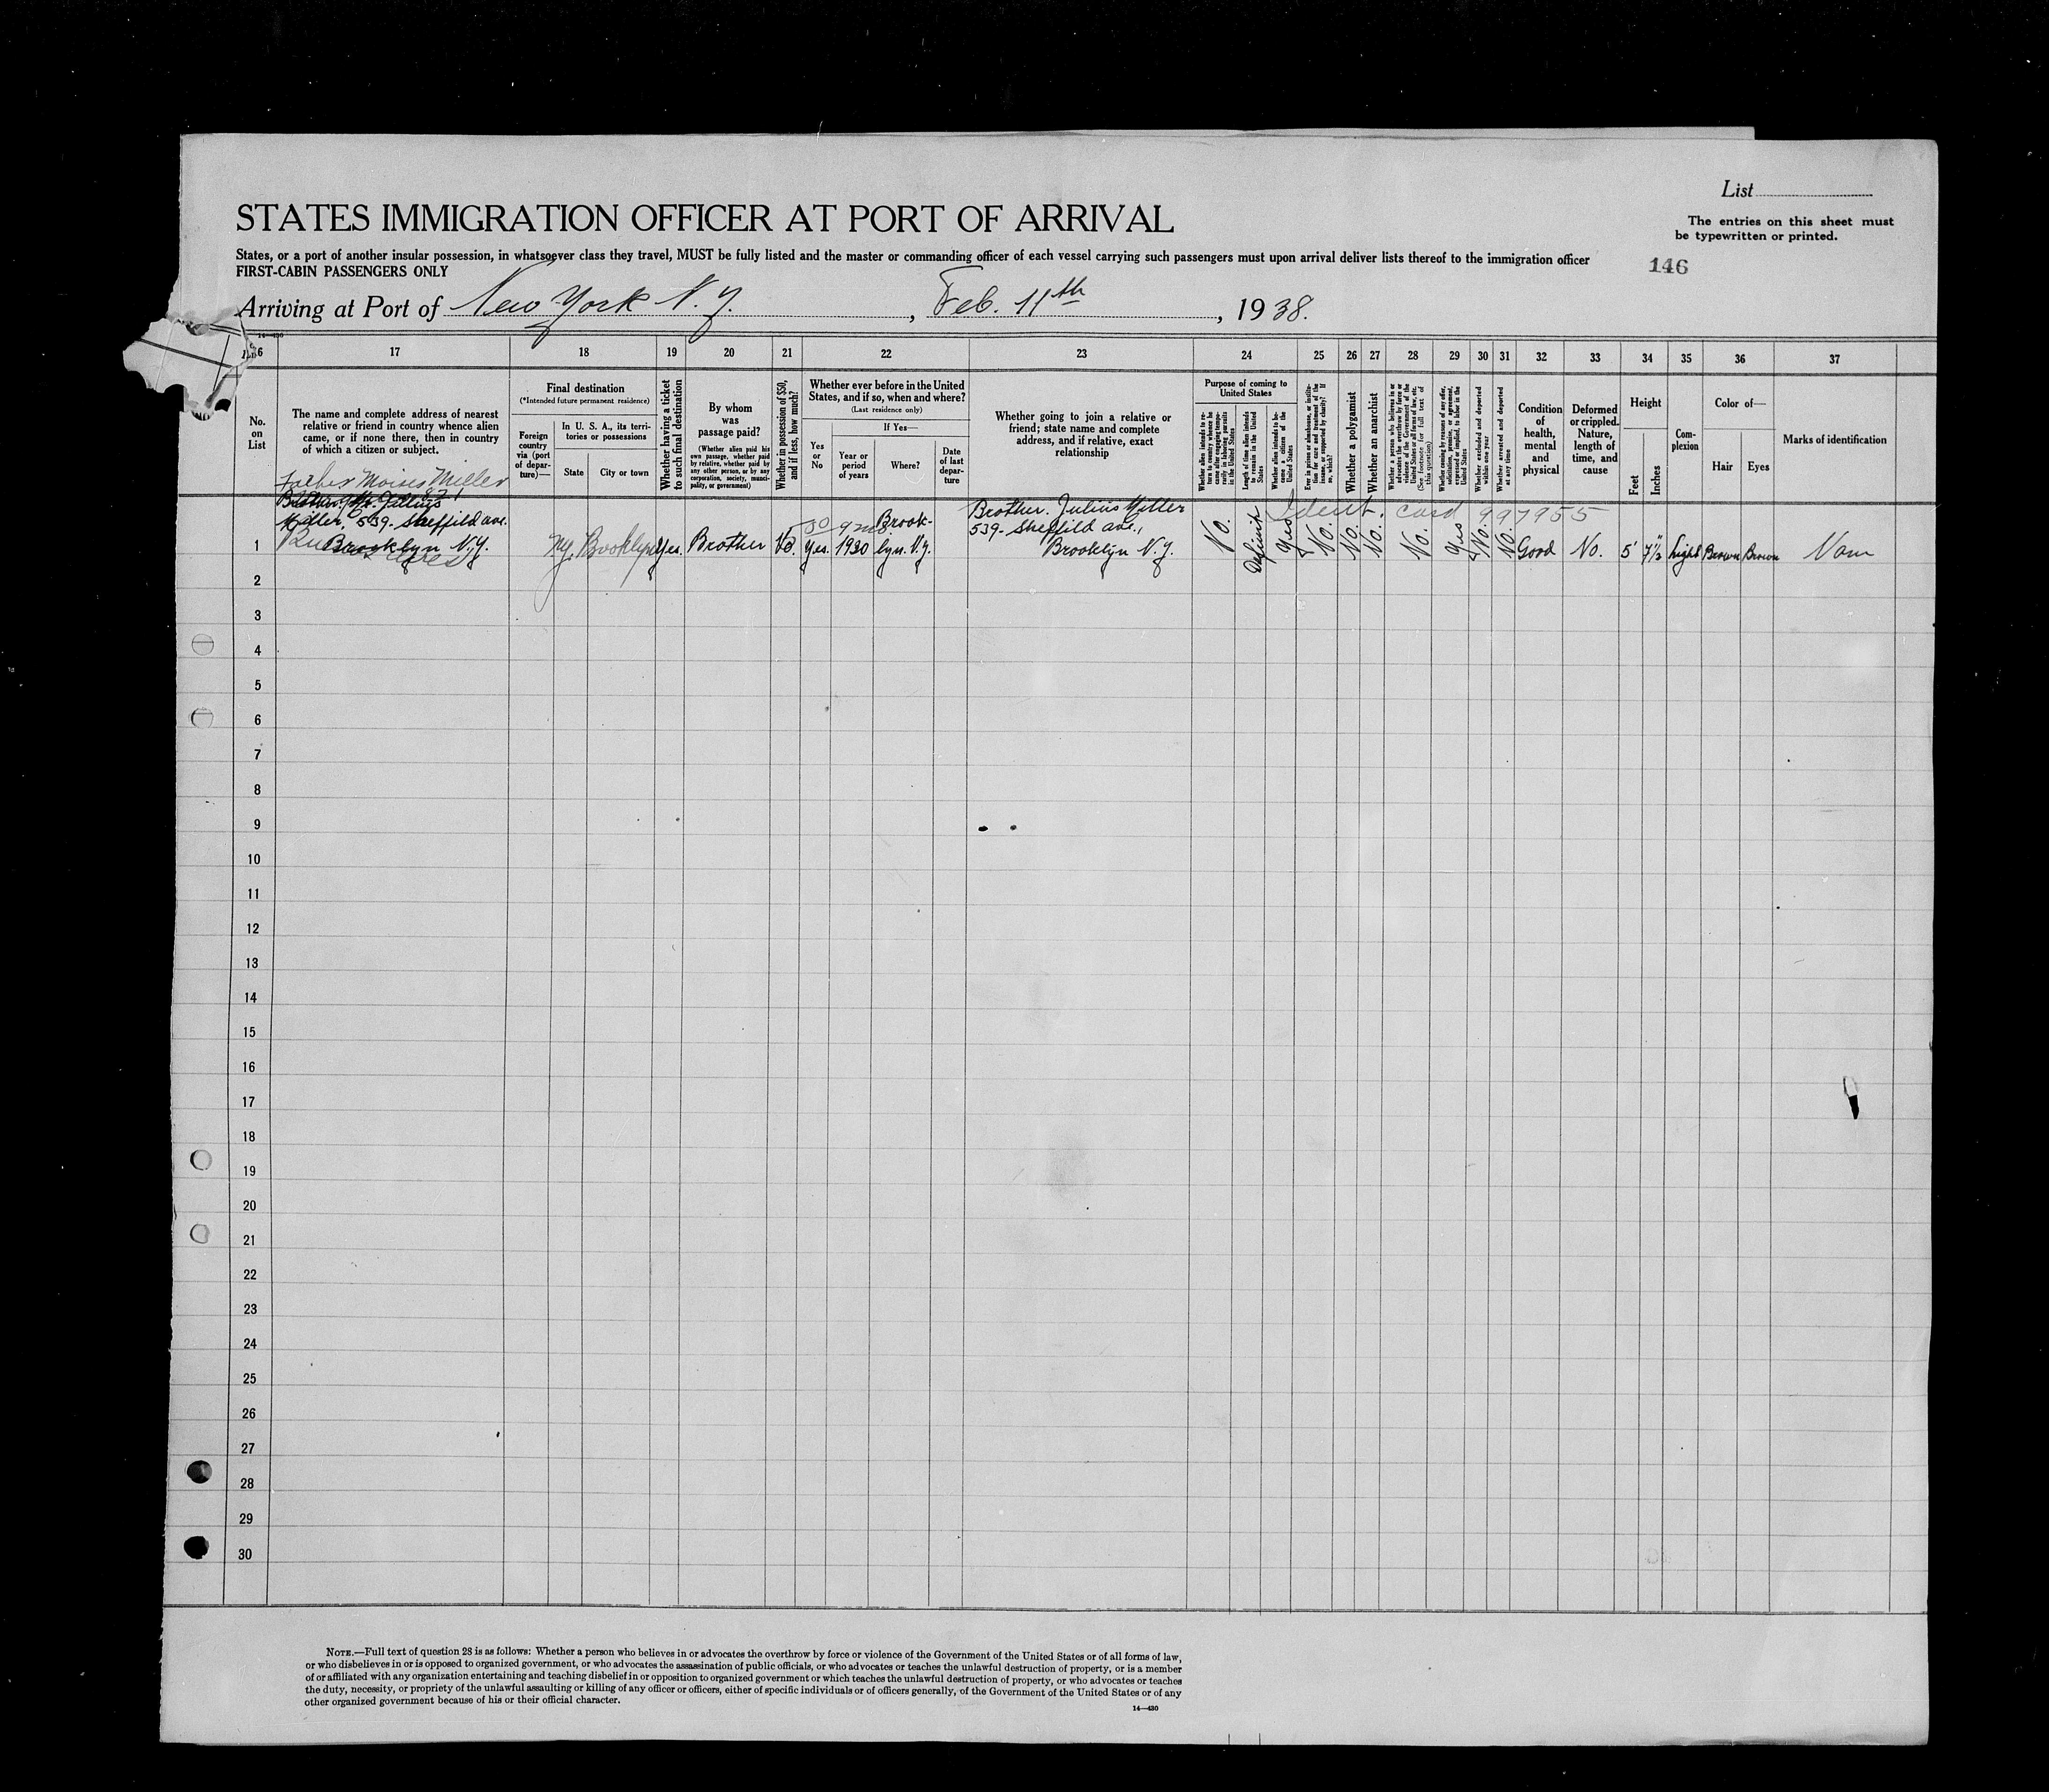 List
The entries on this sheet must
be typewritten or printed.
STATES IMMIGRATION OFFICER AT PORT OF ARRIVAL
States, or a port of another insular possession, in whatsoever class they travel, MUST be fully listed and the master or commanding officer of each vessel carrying such passengers must upon arrival deliver lists thereof to the immigration officer
FIRST-CABIN PASSENGERS ONLY
146
Arriving at Port of New York N. Y. , Feb. 11th , 1938.
14—430
16 17 18 19 20 21 22 23 24 25 26 27 28 29 30 31 32 33 34 35 36 37
No.
on
List
The name and complete address of nearest
relative or friend in country whence alien
came, or if none there, then in country
of which a citizen or subject.
Final destination
(*Intended future permanent residence)
Foreign
country
via (port
of depar-
ture)—
In U. S. A., its terri-
tories or possessions
State
City or town
Whether having a ticket
to such final destination
By whom
was
passage paid?
(Whether alien paid his
own passage, whether paid
by relative, whether paid by
any other person, or by any
corporation, society, munici-
pality, or government)
Whether in possession of $50,
and if less, how much?
Whether ever before in the United
States, and if so, when and where?
(Last residence only)
Yes
or
No
If Yes—
Year or
period
of years
Where?
Date
of last
depar-
ture
Whether going to join a relative or
friend; state name and complete
address, and if relative, exact
relationship
Purpose of coming to
United States
Whether alien intends to re-
turn to country whence he
came after engaging tempo-
rarily in laboring pursuits
in the United States
Length of time alien intends
to remain in the United
States
Whether alien intends to be-
come a citizen of the
United States
Ever in prison or almshouse, or institu-
tion for care and treatment of the
insane, or supported by charity? If
so, which?
Whether a polygamist
Whether an anarchist
Whether a person who believes in or
advocates the overthrow by force or
violence of the Government of the
United States or all forms of law, etc.
(See footnote for full text of
this question)
Whether coming by reason of any offer,
solicitation, promise, or agreement,
expressed or implied, to labor in the
United States
Whether excluded and deported
within one year
Whether arrested and deported
at any time
Condition
of
health,
mental
and
physical
Deformed
or crippled.
Nature,
length of
time, and
cause
Height
Feet
Inches
Com-
plexion
Color of—
Hair
Eyes
Marks of identification
Father Moises Miller
Brother. Mr. Julius
Miller, 539- Sheffild ave.
Brooklyn N.Y.
1 N.Y. Brooklyn Yes. Brother Yes. 1930 Brook-
lyn. N.Y.
Brother. Julius Miller
539- Sheffild ave.,
Brooklyn N.Y.
Ident. card 997955
No. Yes No. No. No. No. Yes No. No. Good No. 5' 7½" Light Brown Brown
2
3
4
5
6
7
8
9
10
11
12
13
14
15
16
17
18
19
20
21
22
23
24
25
26
27
28
29
30
NOTE.—Full text of question 28 is as follows: Whether a person who believes in or advocates the overthrow by force or violence of the Government of the United States or of all forms of law,
or who disbelieves in or is opposed to organized government, or who advocates the assassination of public officials, or who advocates or teaches the unlawful destruction of property, or is a member
of or affiliated with any organization entertaining and teaching disbelief in or opposition to organized government or which teaches the unlawful destruction of property, or who advocates or teaches
the duty, necessity, or propriety of the unlawful assaulting or killing of any officer or officers, either of specific individuals or of officers generally, of the Government of the United States or of any
other organized government because of his or their official character.
14—430